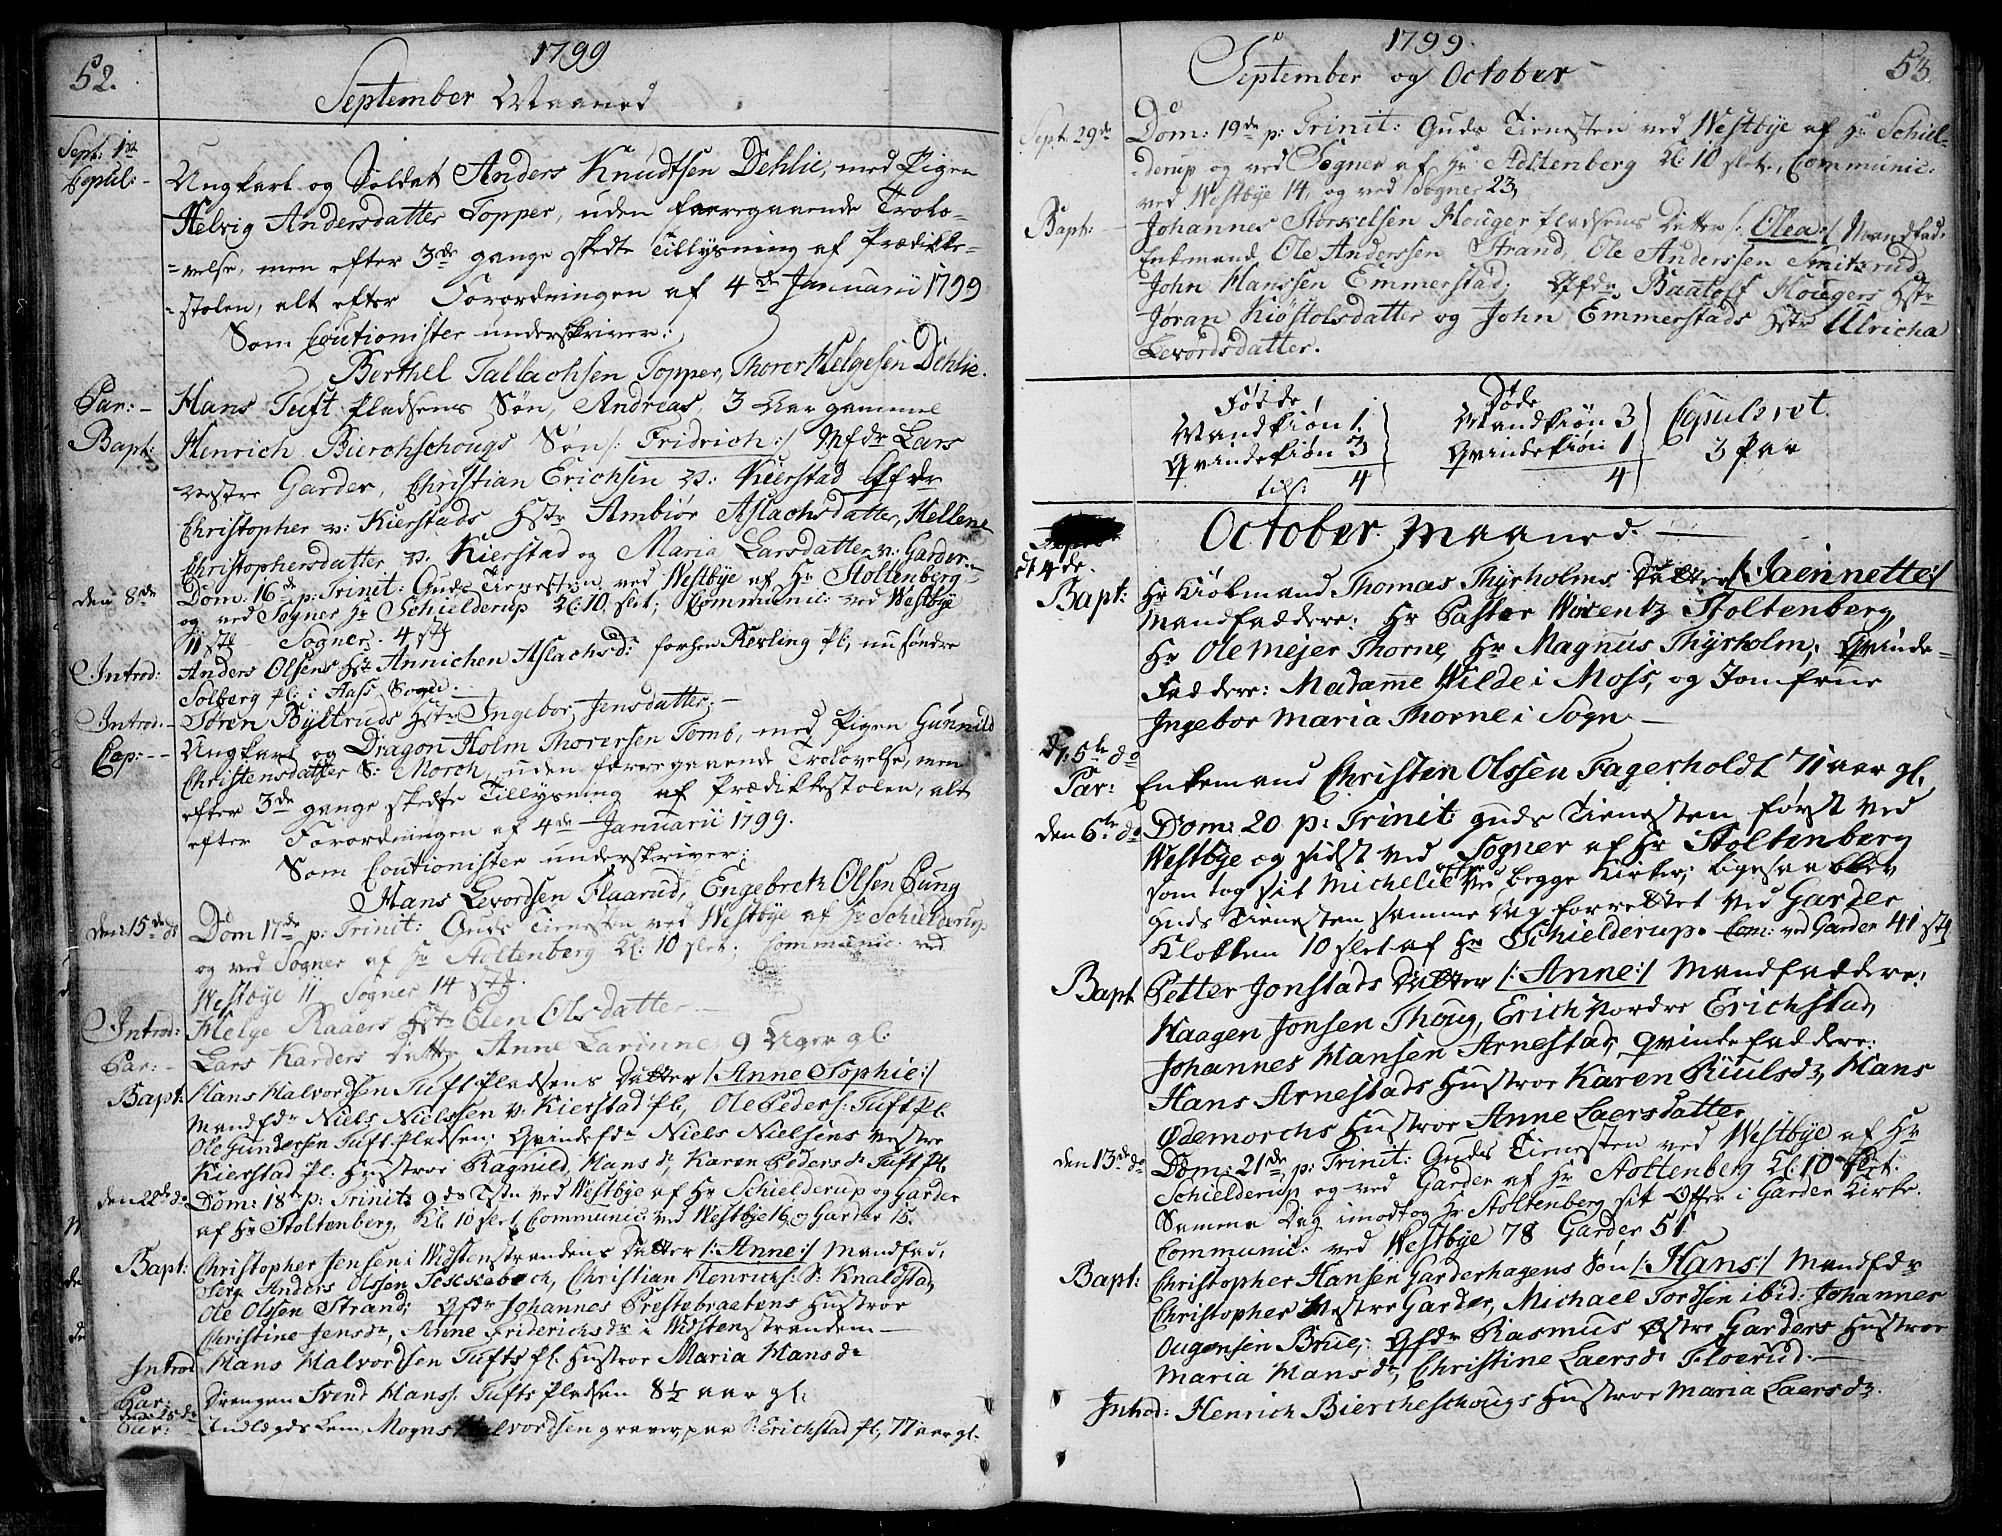 52.
1799
September Maaned
Sept: 1ste
Copul:
Ungkarl og Soldat Anders Knudtsen Dehlie, med Pigen
Helvig Andersdatter Topper, uden foregaaende Trolo-
-velse, men efter 3de gange skedte Tillysning af Prædikke-
-stolen, alt efter Forordningen af 4de Januarii 1799
Som Coutionister underskriver:
Berthel Tallachsen Topper, Thorer Helgesen Dehlie.
Par:- Hans Tuft Pladsens Søn, Andreas, 3 Aar gammel
Bapt: Henrich Bierchschougs Søn /: Fridrich :/ Mfdr Lars
vestre Garder, Christian Erichsen v: Kierstad Qfdr
Christopher v: Kierstads Hstr Ambiør Aslachsdatter, Hellene
Christophersdatter v: Kierstad og Maria Larsdatter v: Garder.
den 8de Dom: 16de p: Trinit: Guds Tienesten ved Westbye af Hr Stoltenberg
og ved Sogner Hr Schielderup Kl: 10 slet; Communic: ved Westbye
11 stk Sogner 4 stk
Introd: Anders Olsens Hstr Annichen Aslachsd: forhen Kerling Pl, nu søndre
Solberg Pl: i Aass Sogn.
Introd:- Søren Byltruds Hstr Ingebor Jensdatter,-
Cop:-- Ungkarl og Dragon Holm Thorersen Tomb, med Pigen Gunnild
Christensdatter S: Morch, uden foregaaende Trolovelse, men
efter 3de gange skedte Tillysning af Prædikkestolen, alt
efter Forordningen af 4de Januarii 1799.
Som Coutionister underskriver:
Hans Levordsen Flaarud, Engebreth Olsen Pung
den 15de ds Dom 17de p: Trinit: Guds Tienesten ved Westbye af Hr Schielderup
og ved Sogner af Hr Stoltenberg Kl: 10 slet; Communic: ved
Westbye 11 Sogner 14 stk.
Introd: Helge Raaers Hstr Elen Olsdatter
Par:- Lars Karders Datter Anne Larinne 9 Uger gl.
Bapt: Hans Halvordsen Tuft Pladsens Datter /: Anne Sophie :/
Mandfdr Niels Nielssen v: Kierstad Pl, Ole Peders: Tuft Pl
Ole Gundersen Tuft Pladsen; Qvindefdr Niels Nielsens Vestre
Kierstad Pl: Hustroe Ragnild Hansdr, Karen Pedersdr Tuft Pl
den 22de ds Dom: 18de p: Trinit: gds Tstn ved Westbye af Hr Schielderup og Garder
af Hr Stoltenberg, Kl: 10 slet, Communic: ved Westbye 16, og Garder 15.
Bapt: Christopher Jensen i Widstenstrandens Datter /: Anne :/ Mandfad:
Serg Anders Olsson, Christian Henrichs: S: Knaldstad,
Ole Olsen Strand; Qfdr Johannes Prestebraatens Hustroe
Christine Jensdr, Anne Friderichsdr i Widstenstranden
Introd Hans Halvordsen Tufts Pl. Hustroe Maria Hansdr
Par: Drengen Svend Hans: Tufts Pladsen 8½ aar gl:
den 25 ds
Par: Indlagds Lem, Mogns Halvordsen graver paa S: Erichstad Pl, 77 aar gl-
1799.
53.
September og October
Sept 29de Dom: 19de p: Trinit: Guds Tienesten ved Westbye af Hr Schiel-
-derup og ved Sogner af Hr Stoltenberg Kl: 10 slet, Communic:
ved Westbye 14, og ved Sogner 23,
Bapt: Johannes Storkelsen Houger Pladsens Datter /: Olea :/ Mandfad:
Enkemand Ole Anderssen Strand, Ole Anderssen Smitzrud,
John Hanssen Emmerstad; Qfdr, Baatolf Hougers Hstr
Joran Kiøstolsdatter og John Emmerstads Hstr Ulricha
Levordsdatter.
Fødde Døde
Mandkiøn 1. Mandkiøn 3 Copuleret.
Qvindekiøn 3 Qvindekiøn 1 3 Par
tils: 4 4
October Maaned.
d 4de.
Bapt: Hr Kiøbmand Thomas Thyrholms Datter /: Jaennette :/
Mandfaddere: Hr Pastor Stoltenberg,
Hr Ole Mejer Thorne, Hr Magnus Thyrholm, Qvinde-
Faddere: Madamme Wilde i Moss, og Jomfrue
Ingebor Maria Thorne i Sogn
d. 5te do
Par: Enkemand Christen Olssen Fagerholdt 71 aar gl.
den 6te do Dom: 20 p: Trinit: guds Tienesten først ved
Westbye og sidst ved Sogner af Hr Stoltenberg
som tog sit Michelie offer ved begge Kirker, ligesaa blev
guds Tienesten samme Dag forrettet ved Garder
Klokken 10 slet af Hr Schielderup. Com: ved Garder 41 stk
Bapt Petter Jonstads Datter /: Anne :/ Mandfaddere:
Haagen Jonsen Thoug, Erich Nordre Erichstad,
Johannes Hansen Arnestad, Qvindefaddere:
Hans Arnestads Hustroe Karen Riulsdr, Hans
Ødemorchs Hustroe Anne Laersdatter
den 13de do Dom: 21de p: Trinit: Guds Tienesten ved Westbye af Hr
Schielderup og ved Garder af Hr Stoltenberg Kl: 10 slet:
Samme Dag imodtog Hr Stoltenberg sit Offer i Garder Kirke.
Communic: ved Westbye 78 Garder 51
Bapt: Christopher Hansen Garderhagens Søn /: Hans :/ Mandfdr
Christopher Vestre Garder, Michael Tordsen ibid: Johannes
Ougensen Brue; Qfdr Rasmus Østre Garders Hustroe
Maria Hansdr, Christine Laersdr Floerud.
Introd: Henrich Biercheschougs Hustroe Maria Laersdr.